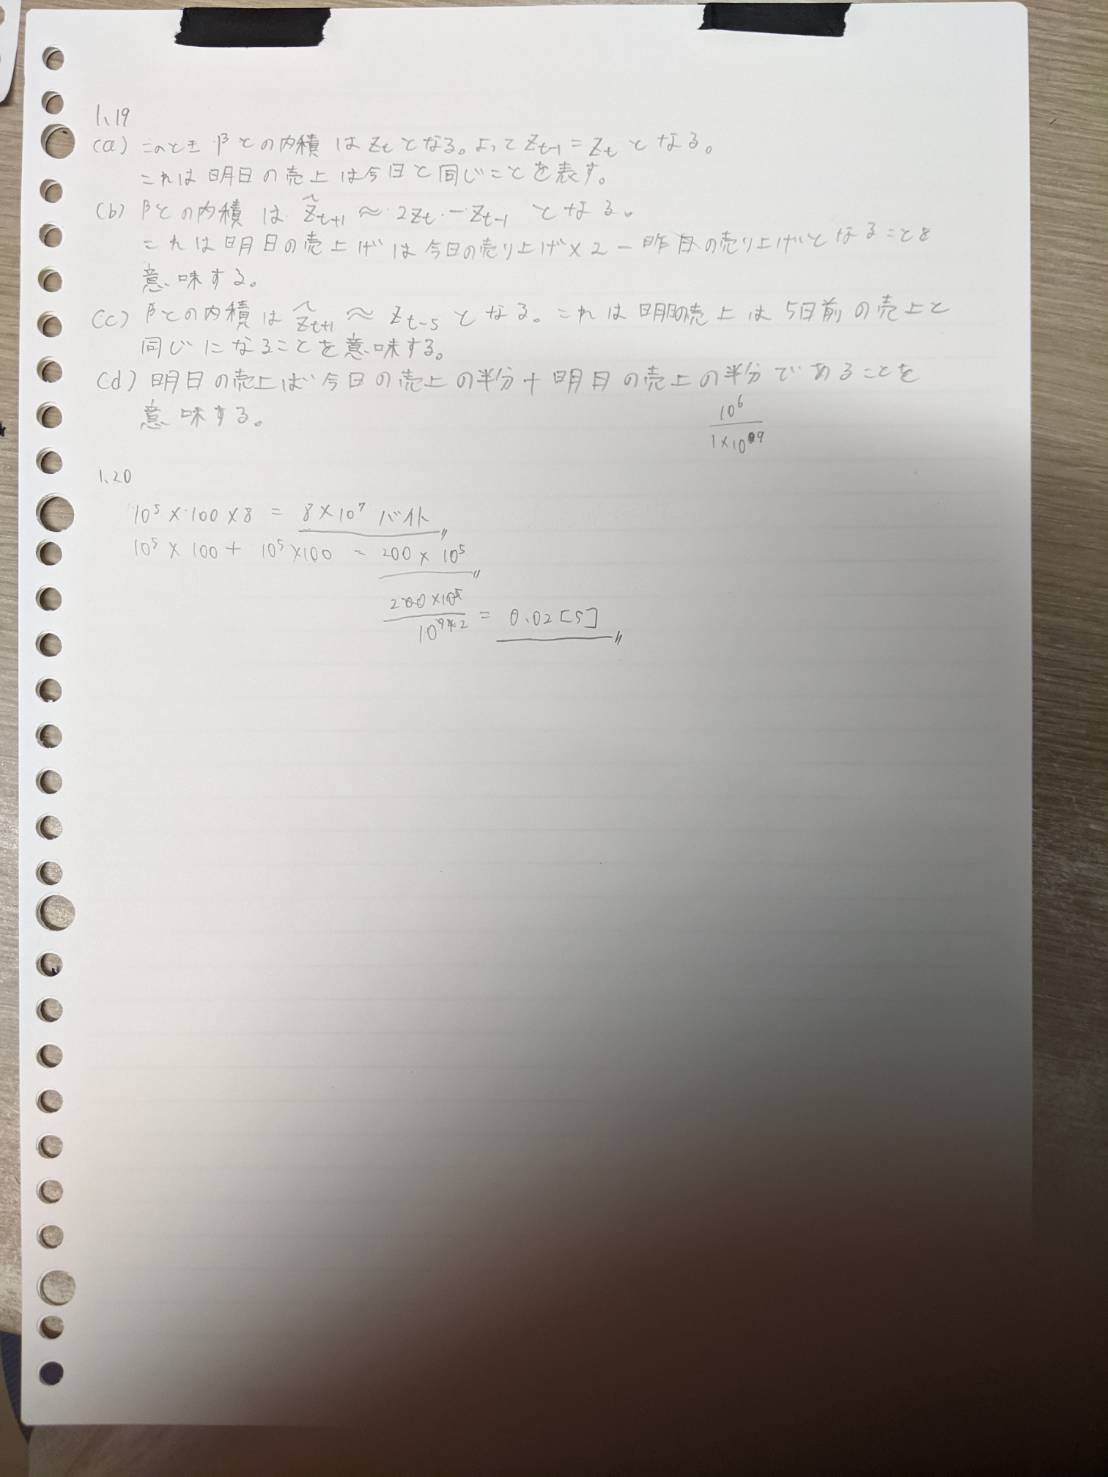 1.19
(a) このとき βとの内積は Zt となる。よって Zt-1 = Zt となる。
これは明日の売上は今日と同じことを表す。
(b) βとの内積は Ẑt+1 ≈ 2Zt - Zt-1 となる。
これは明日の売上げは今日の売り上げ×2 - 昨日の売り上げとなることを
意味する。
(c) βとの内積は Ẑt+1 ≈ Zt-5 となる。これは明日の売上は5日前の売上と
同じになることを意味する。
(d) 明日の売上は 今日の売上の半分 + 明日の売上の半分であることを
意味する。
10^6 / 1×10^9
1.20
10^5 × 100 × 8 = 8×10^7 バイト
10^5 × 100 + 10^5 × 100 = 200 × 10^5
200×10^5 / 10^9 = 0.02[s]